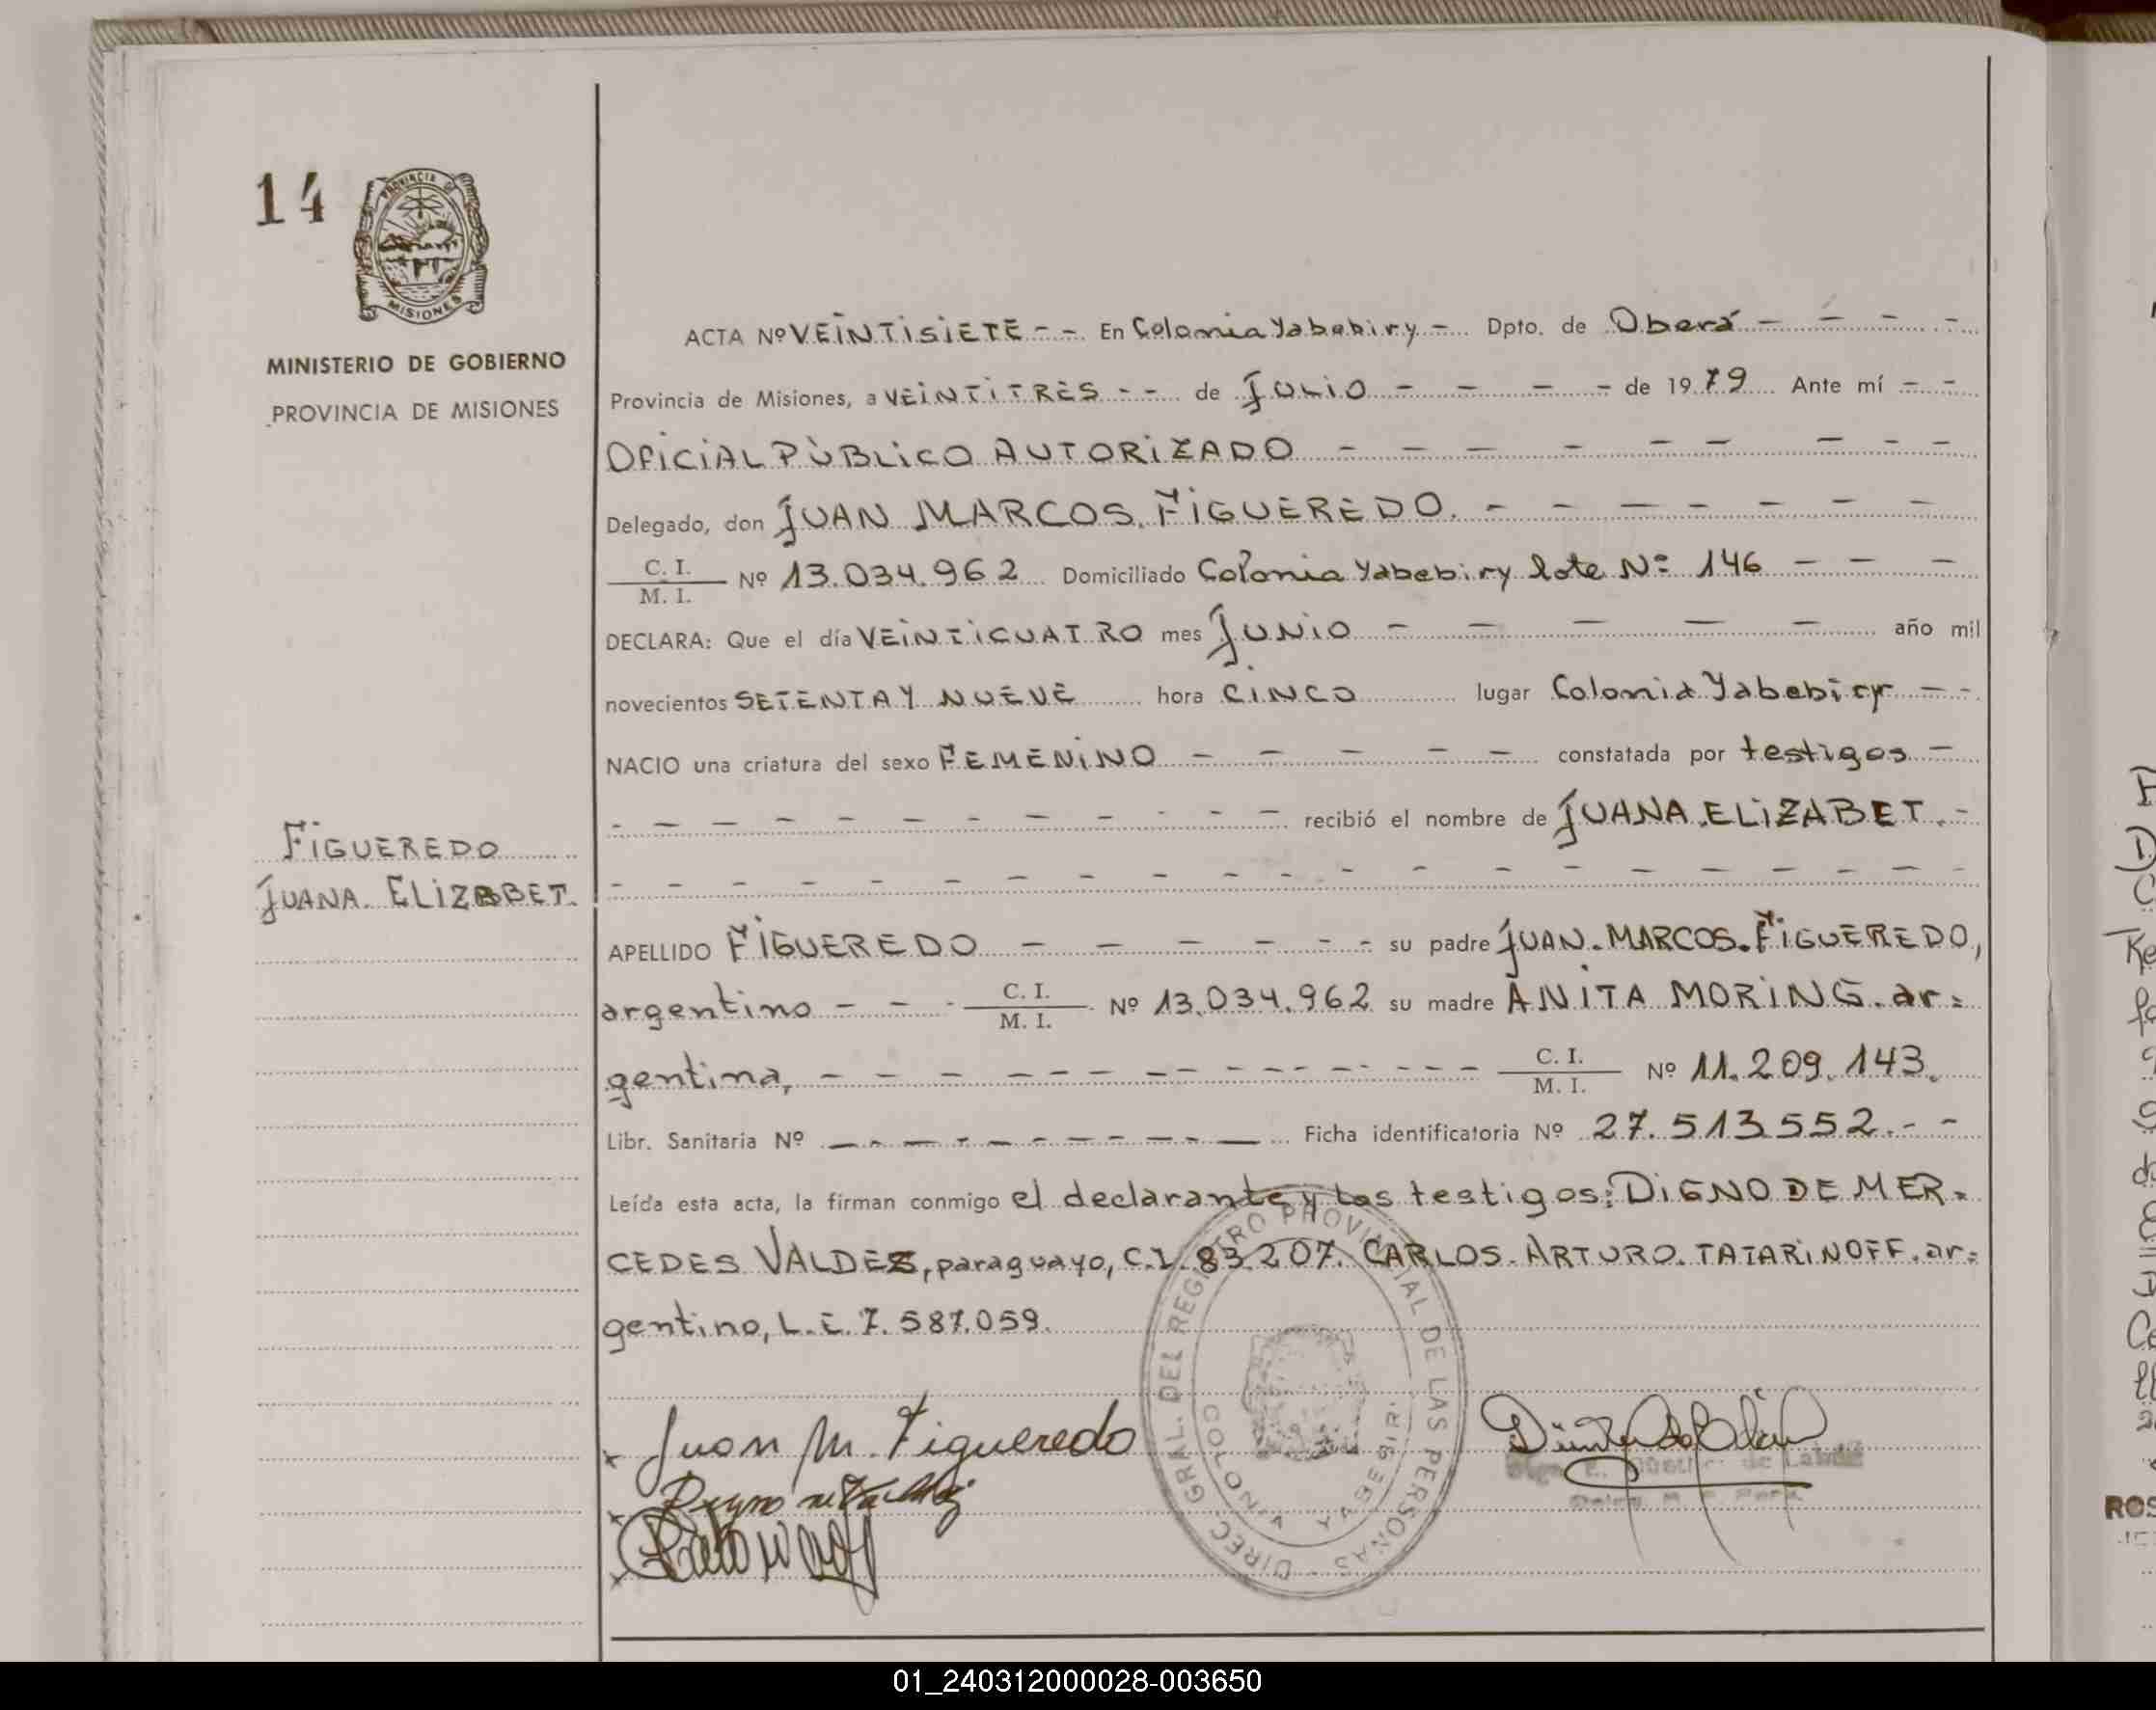 14
PROVINCIA DE
MISIONES
MINISTERIO DE GOBIERNO
PROVINCIA DE MISIONES
ACTA Nº VEINTISIETE - - En Colonia Yabebiry - Dpto. de Oberá - - - -
Provincia de Misiones, a VEINTITRÈS - - de JULIO - - - - de 1979 Ante mí - -
OFICIAL PÙBLICO AUTORIZADO - - - - - - - - -
Delegado, don JUAN MARCOS FIGUEREDO. - - - - - - -
C. I.
M. I. Nº 13.034.962 Domiciliado Colonia Yabebiry lote Nº 146 - - -
DECLARA: Que el día VEINTICUATRO mes JUNIO - - - - - año mil
novecientos SETENTA Y NUEVE hora CINCO lugar Colonia Yabebiry - -
NACIO una criatura del sexo FEMENINO - - - - - constatada por testigos -
- - - - - - - - - - - recibió el nombre de JUANA ELIZABET. -
FIGUEREDO
JUANA. ELIZABET.
APELLIDO FIGUEREDO - - - - - - - su padre JUAN. MARCOS. FIGUEREDO,
argentino - - - C. I.
M. I. Nº 13.034.962 su madre ANITA MORING. ar=
gentina, - - - - - - - - - - - - - - C. I.
M. I. Nº 11.209.143.
Libr. Sanitaria Nº - - - - - - - - - - - Ficha identificatoria Nº 27.513552. - -
Leída esta acta, la firman conmigo el declarante y los testigos: DIGNO DE MER=
CEDES VALDEZ, paraguayo, C.I. 83.207. CARLOS. ARTURO. TATARINOFF. ar=
gentino, L.E. 7.587.059.
x Juan M. Figueredo
DIREC. GRAL. DEL REGISTRO PROVINCIAL DE LAS PERSONAS
COLONIA YABEBIRI
01_240312000028-003650